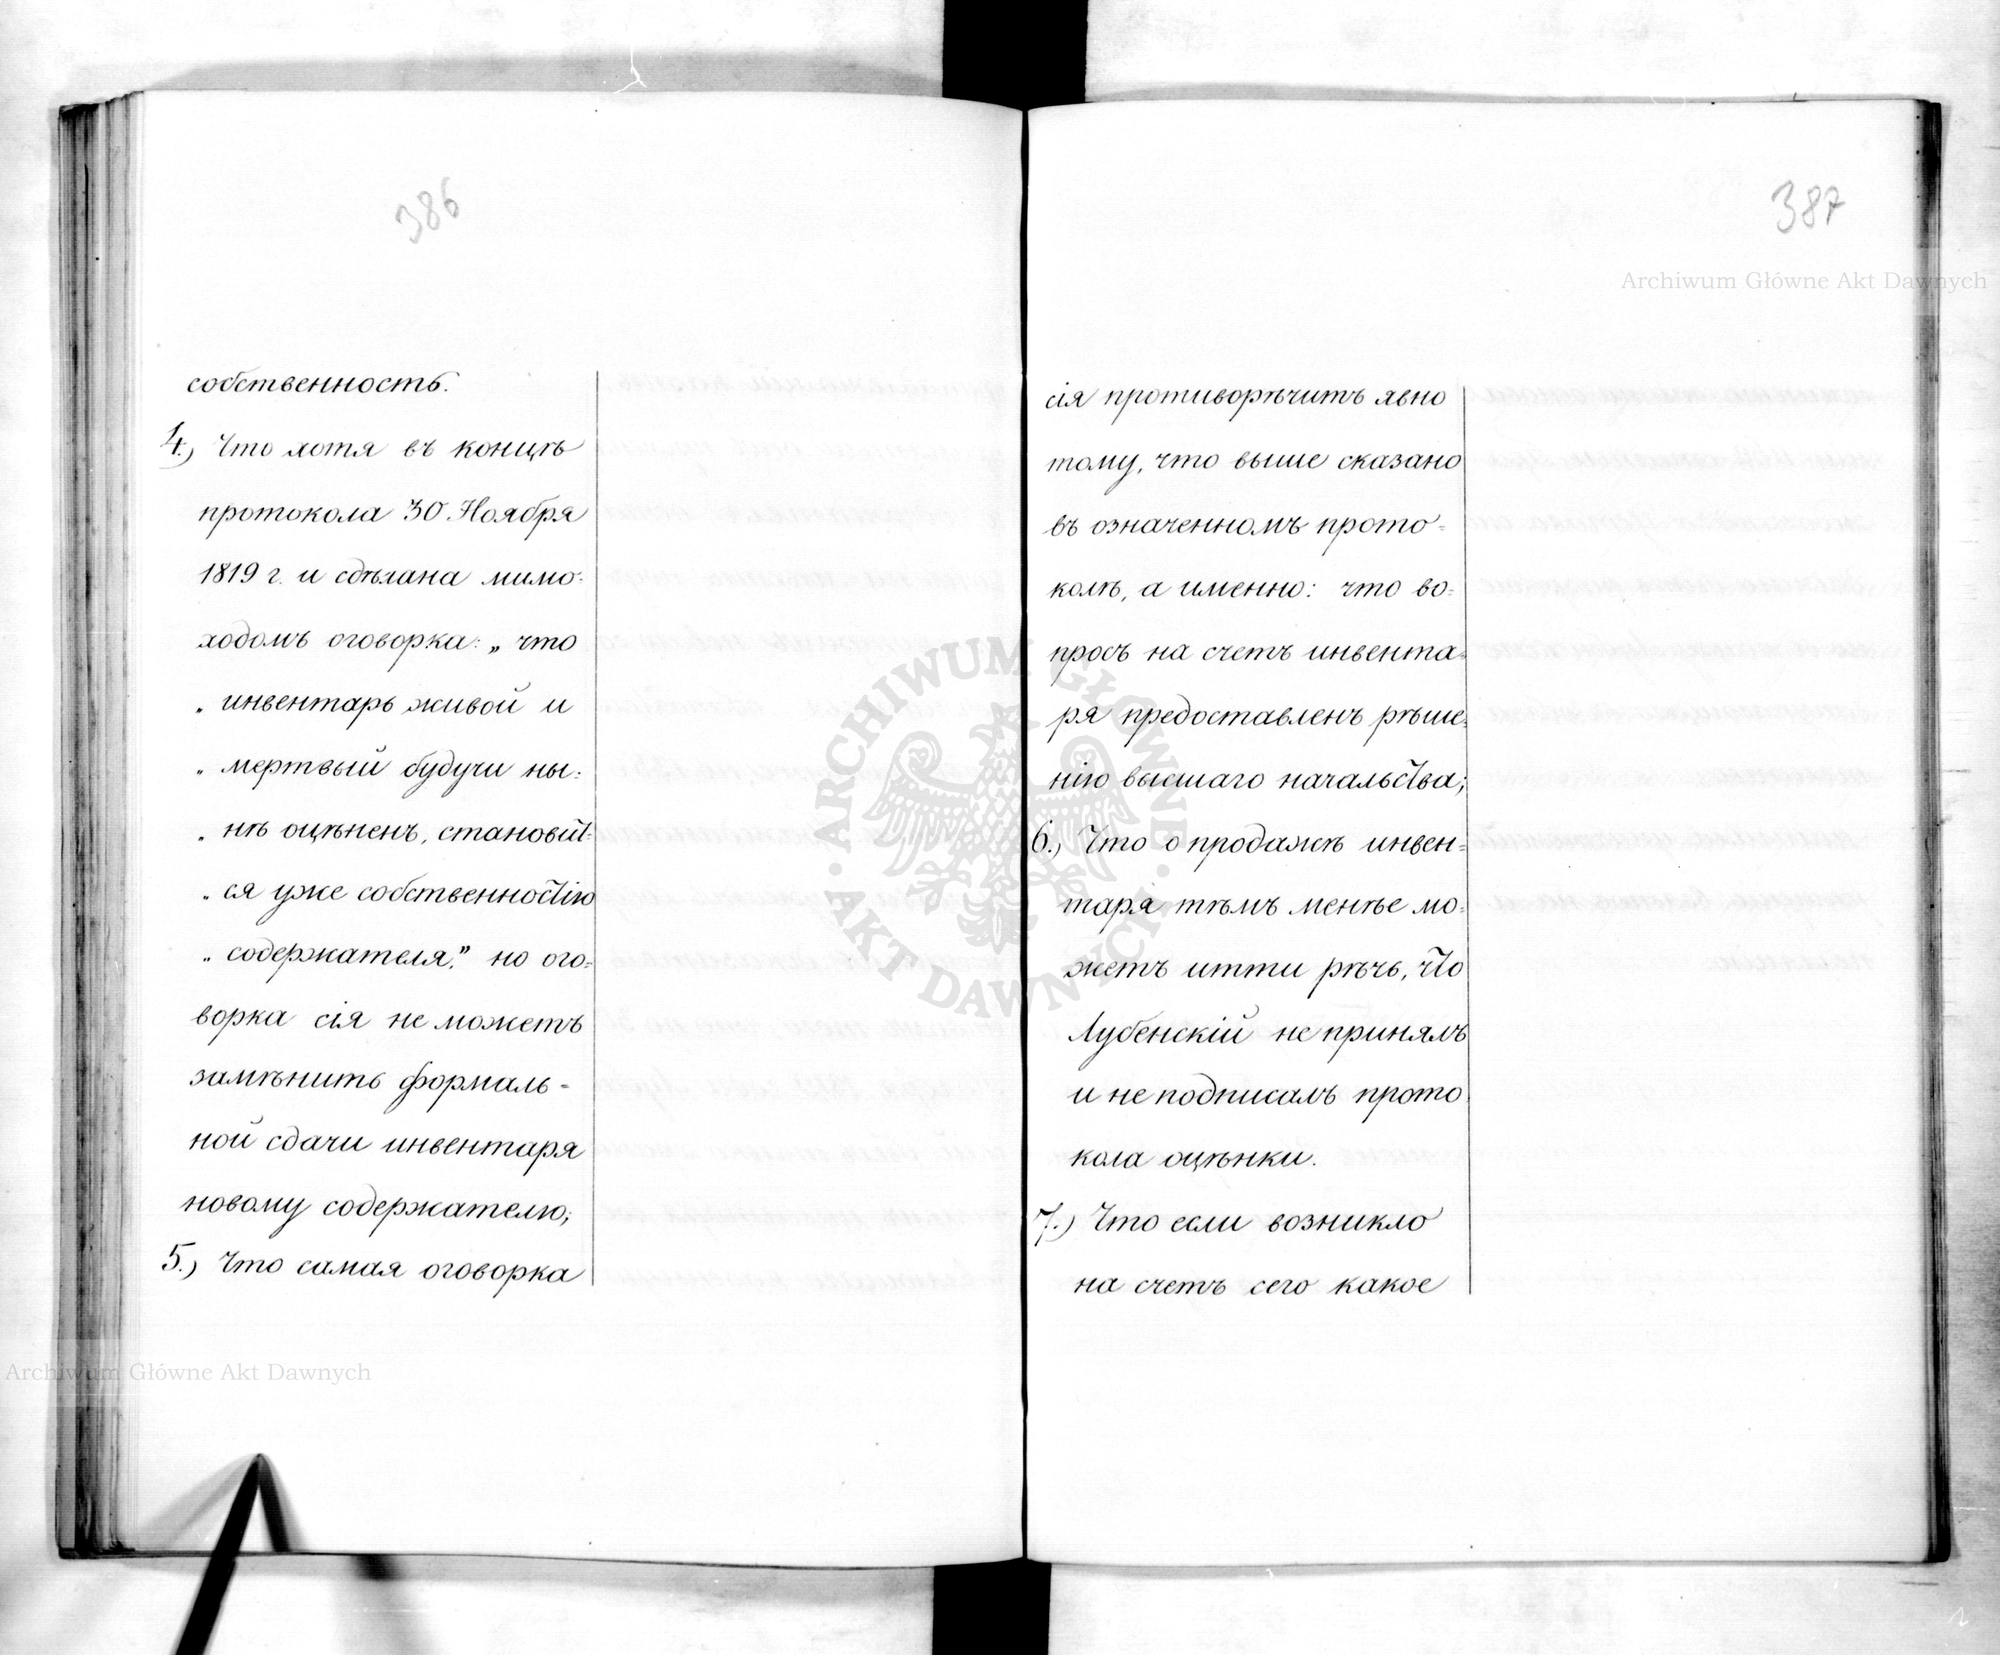 386
собственность.
4.) Что хотя въ концѣ
протокола 30. Ноября
1819 г. и сдѣлана мимо-
ходомъ оговорка: „ что
„ инвентарь живой и
„ мертвый будучи ны-
„ нѣ оцѣненъ, становит-
„ ся уже собственностію
„ содержателя." но ого-
ворка сія не можетъ
замѣнить формаль-
ной сдачи инвентаря
новому содержателю;
5.) Что самая оговорка
387
сія противорѣчитъ явно
тому, что выше сказано
въ означенномъ прото-
колѣ, а именно: что во-
просъ на счетъ инвента-
ря предоставленъ рѣше-
нію высшаго начальства;
6.) Что о продажѣ инвен-
таря тѣмъ менѣе мо-
жетъ итти рѣчь, что
Лубенскій не принялъ
и не подписалъ прото-
кола оцѣнки.
7.) Что если возникло
на счетъ сего какое
Archiwum Główne Akt Dawnych
Archiwum Główne Akt Dawnych
· ARCHIWUM GŁÓWNE · AKT DAWNYCH ·